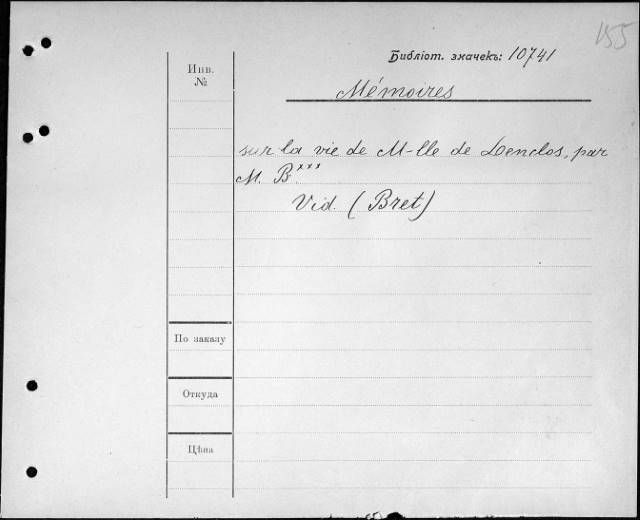 155
Библіот. значекъ: 10741
Инв.
№
Mémoires
sur la vie de M-lle de Lenclos, par
M. B.xxx
Vid. (Bret)
По заказу
Откуда
Цѣна